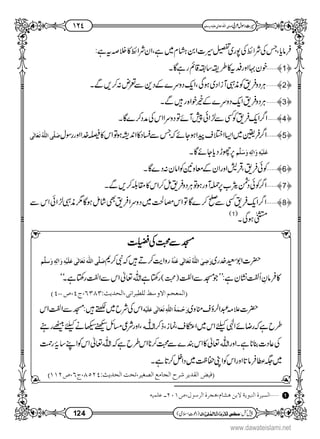 ١٢٤
فرمایا، جس کی شرائط کی پوری تفصیل سیرت ابن ہشام میں ہے، ان شرائط کا خلاصہ یہ ہے:
﴿1﴾ خون بہا اور فدیہ کا سابقہ طریقہ قائم رہے گا۔
﴿2﴾ ہر دو فریق کو مذہبی آزادی ہوگی، ایک دوسرے کے دین سے تعرض نہ کریں گے۔
﴿3﴾ ہر دو فریق ایک دوسرے کے خیر خواہ رہیں گے۔
﴿4﴾ اگر ایک فریق کو کسی سے لڑائی پیش آئے تو دوسرا اس کی مدد کرے گا۔
﴿5﴾ اگر فریقین میں ایسا اختلاف پیدا ہو جائے جس سے فساد کا اندیشہ ہو تو اس کا فیصلہ خدا اور رسول صَلَّی اللّٰہُ تَعَالٰی
عَلَیْہِ وَاٰلِہٖ وَسَلَّمَ پر چھوڑ دیا جائے گا۔
﴿6﴾ کوئی فریق قریش اور ان کے معاونین کو امان نہ دے گا۔
﴿7﴾ اگر کوئی دشمن یثرب پر حملہ آور ہو تو ہر دو فریق مل کر اس کا مقابلہ کریں گے۔
﴿8﴾ اگر ایک فریق کسی سے صلح کرے گا تو اس مصالحت میں دوسرا فریق بھی شامل ہوگا مگر مذہبی لڑائی اس سے
مستثنیٰ ہوگی۔ (1)
مسجد سے محبت کی فضیلت
حضرت ابو سعید خدری رَضِیَ اللّٰہُ تَعَالٰی عَنْہُ روایت کرتے ہیں کہ نبی کریم صَلَّی اللّٰہُ تَعَالٰی عَلَیْہِ وَاٰلِہٖ وَسَلَّمَ
کا فرمان الفت نشان ہے: ’’جو مسجد سے الفت (محبت) رکھتا ہے اللہ تعالیٰ اس سے الفت رکھتا ہے۔‘‘
(المعجم الاوسط للطبرانی، الحدیث: ٦٣٨٣، ج٤، ص٤٠٠)
حضرت علامہ عبدالرؤف مناوی عَلَیْہِ رَحْمَۃُ اللّٰہِ الْقَوِی اس کی شرح میں لکھتے ہیں: مسجد سے الفت اس
طرح ہے کہ رضائے الٰہی کیلئے اس میں اعتکاف، نماز، ذکر اللہ، اور شرعی مسائل سیکھنے سکھانے کیلئے بیٹھے رہنے
کی عادت بنانا ہے۔ اور اللہ تعالیٰ کا اس بندے سے محبت کرنا اس طرح ہے کہ اللہ تعالیٰ اس کو اپنے سایہ رحمت
میں جگہ عطا فرماتا اور اس کو اپنی حفاظت میں داخل کرتا ہے۔
(فیض القدیر شرح الجامع الصغیر، تحت الحدیث: ٨٥٢٤، ج٦، ص١١٢)
السیرۃ النبویۃ لابن ھشام، ھجرۃ الرسول، ص٢٠١۔ علمیہ
124
www.dawateislami.net